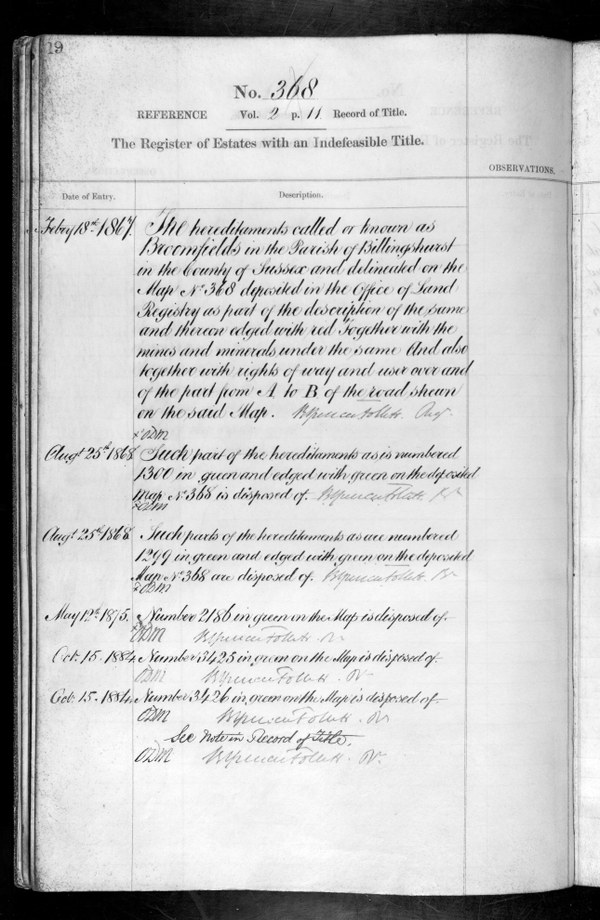 19
No. 368
REFERENCE Vol. 2 p. 11 Record of Title.
The Register of Estates with an Indefeasible Title.
OBSERVATIONS.
Date of Entry. Description.
Feby 18th 1867. The hereditaments called or known as
Broomfields in the Parish of Billingshurst
in the County of Sussex and delineated on the
Map No. 368 deposited in the Office of Land
Registry as part of the description of the same
and thereon edged with red Together with the
mines and minerals under the same And also
together with rights of way and user over and
of the part from A to B of the road shewn
on the said Map. Brent Spencer Follett
ODM
Augt 25th 1868 Such part of the hereditaments as is numbered
1300 in green and edged with green on the deposited
Map No. 368 is disposed of. Brent Spencer Follett
ODM
Augt 25th 1868 Such parts of the hereditaments as are numbered
1299 in green and edged with green on the deposited
Map No. 368 are disposed of. Brent Spencer Follett
ODM
May 12th 1875. Number 2186 in green on the Map is disposed of.
ODM Brent Spencer Follett
Oct. 15. 1884 Number 3425 in green on the Map is disposed of.
ODM Brent Spencer Follett
Oct. 15. 1884 Number 3426 in green on the Map is disposed of.
ODM Brent Spencer Follett
See Note in Record of Title.
ODM Brent Spencer Follett